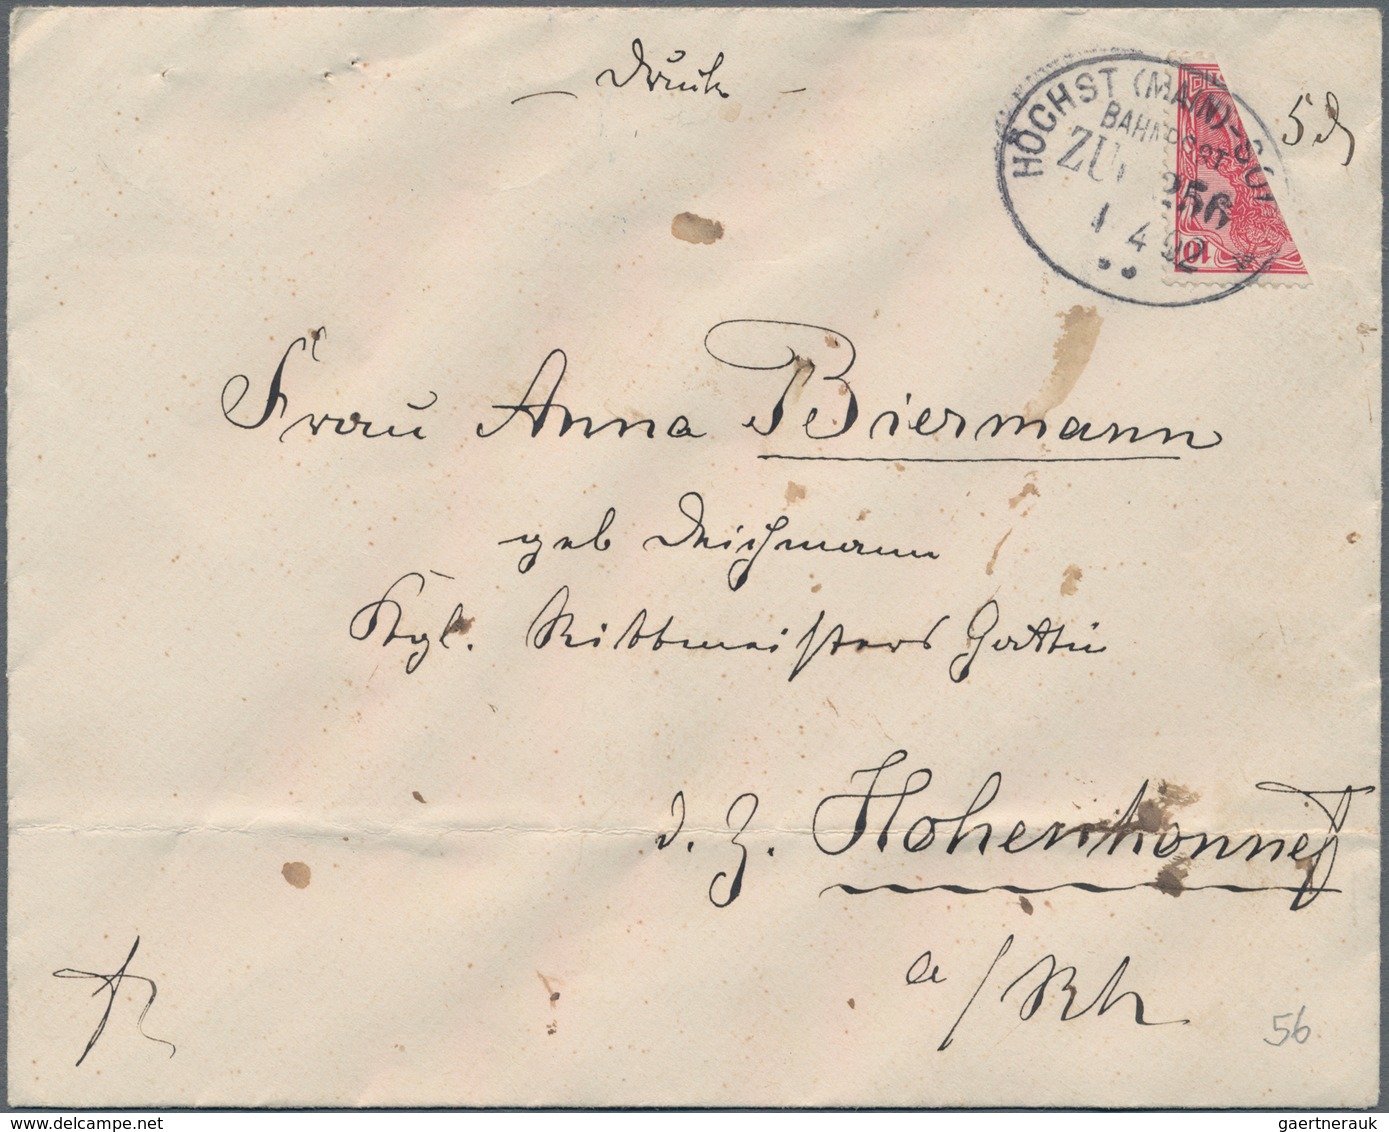 Druck
5 ₰
HÖCHST (MAIN)-SO
BAHNPOST
ZUG 256
1 4 92
10
Frau Anna Biermann
geb Deichmann
Kgl. Rittmeisters Gattin
d. Z. Hohenhonnef
a/Rh
56
gaertnerauk